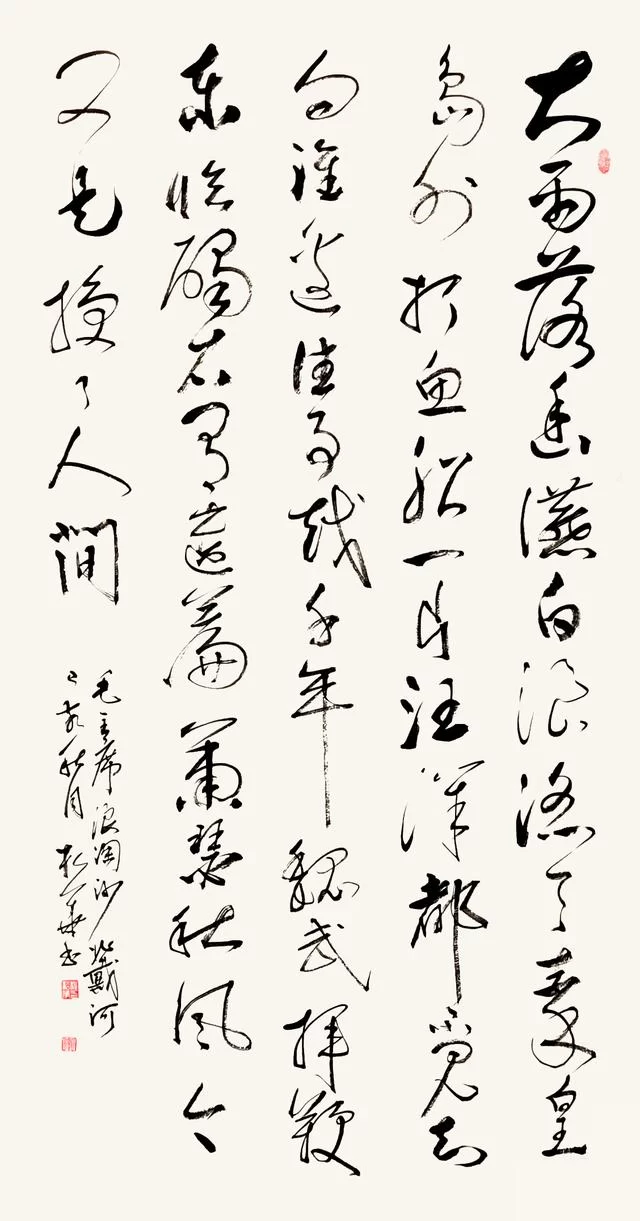 大雨落幽燕白浪滔天秦皇
島外打魚船一片汪洋都不見知
向誰邊往事越千年魏武揮鞭
東臨碣石有遺篇蕭瑟秋風今
又是換了人間
毛主席浪淘沙北戴河
己亥秋月松華書